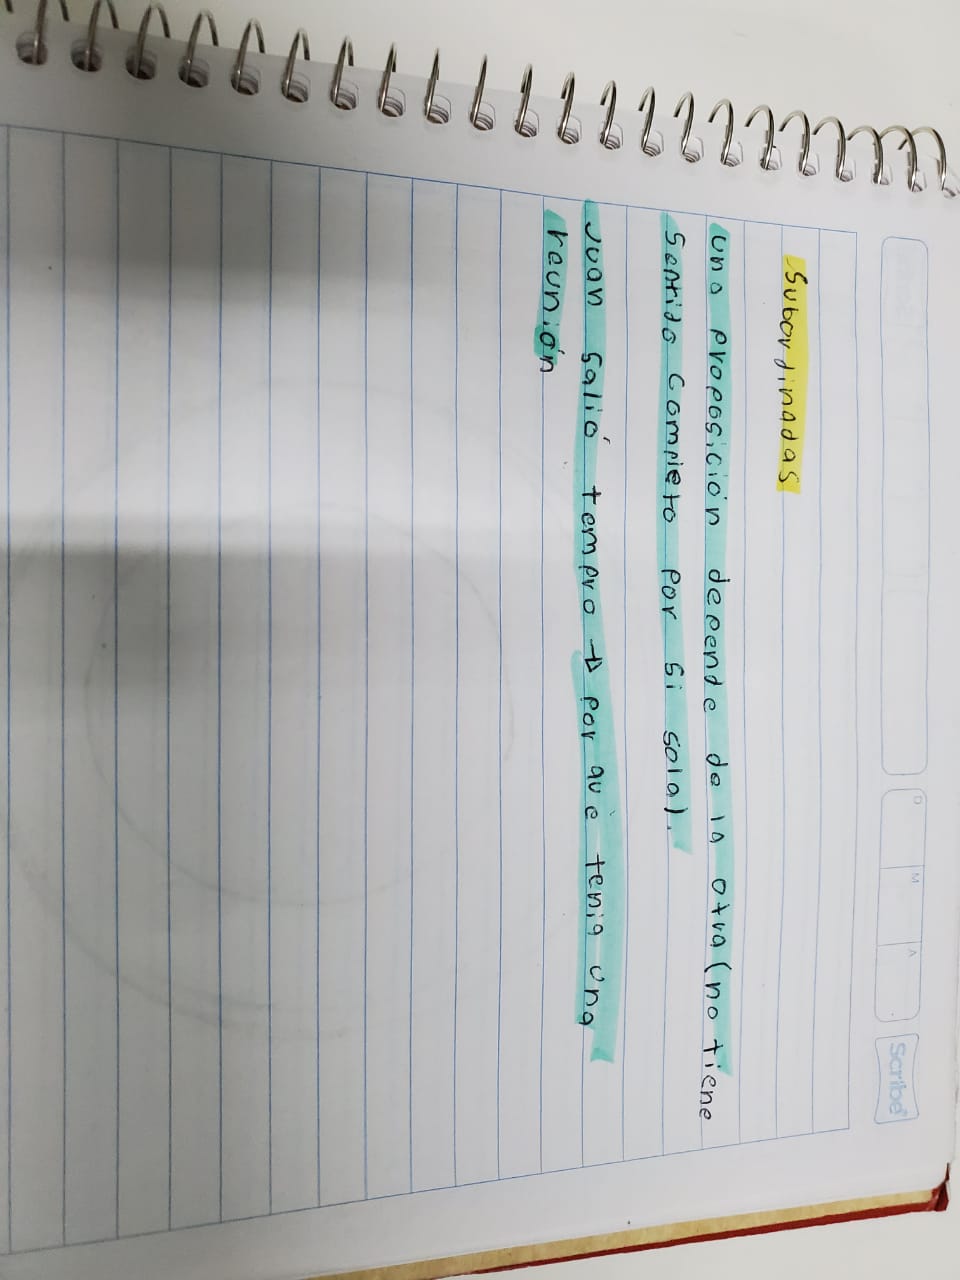 Scribe
D M A
Subordinadas
Una proposición depende de la otra (no tiene
sentido completo por si sola).
Juan salió tempro → por que tenia una
reunión